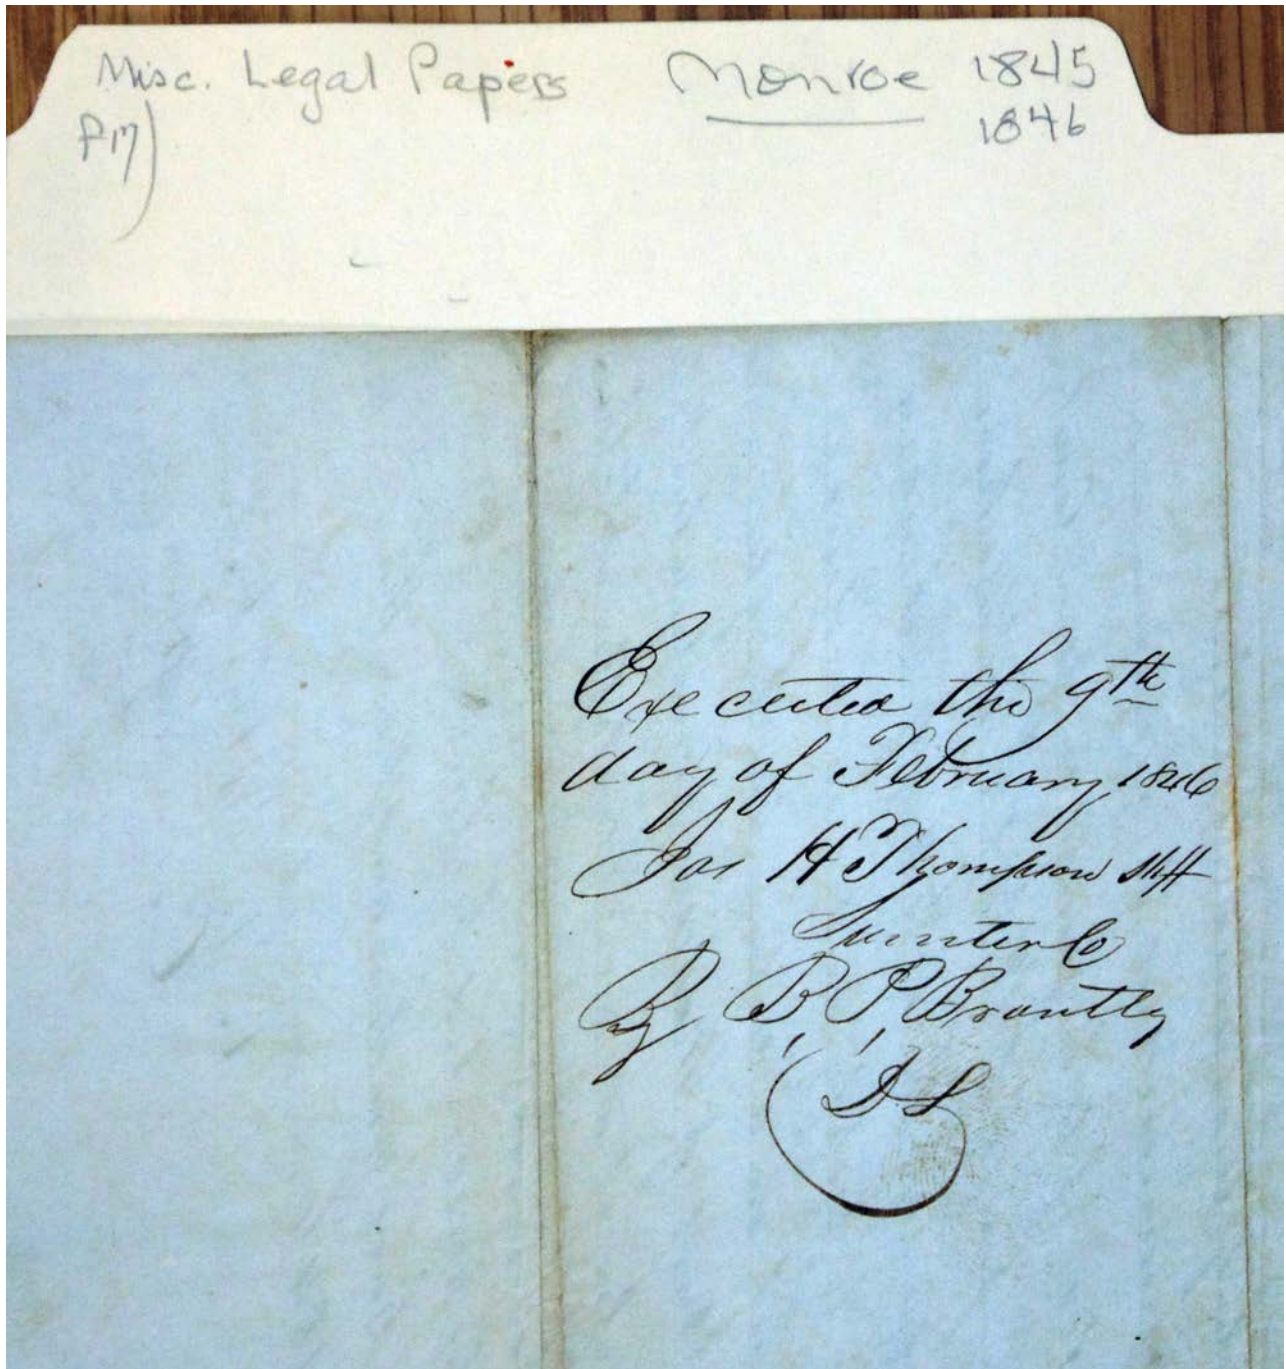 Misc. Legal Papers Monroe 1845
1846
Executed the 9th
day of February 1846
Jas H Thompson Shff
Sumter Co
By B. P. Brantly
D S